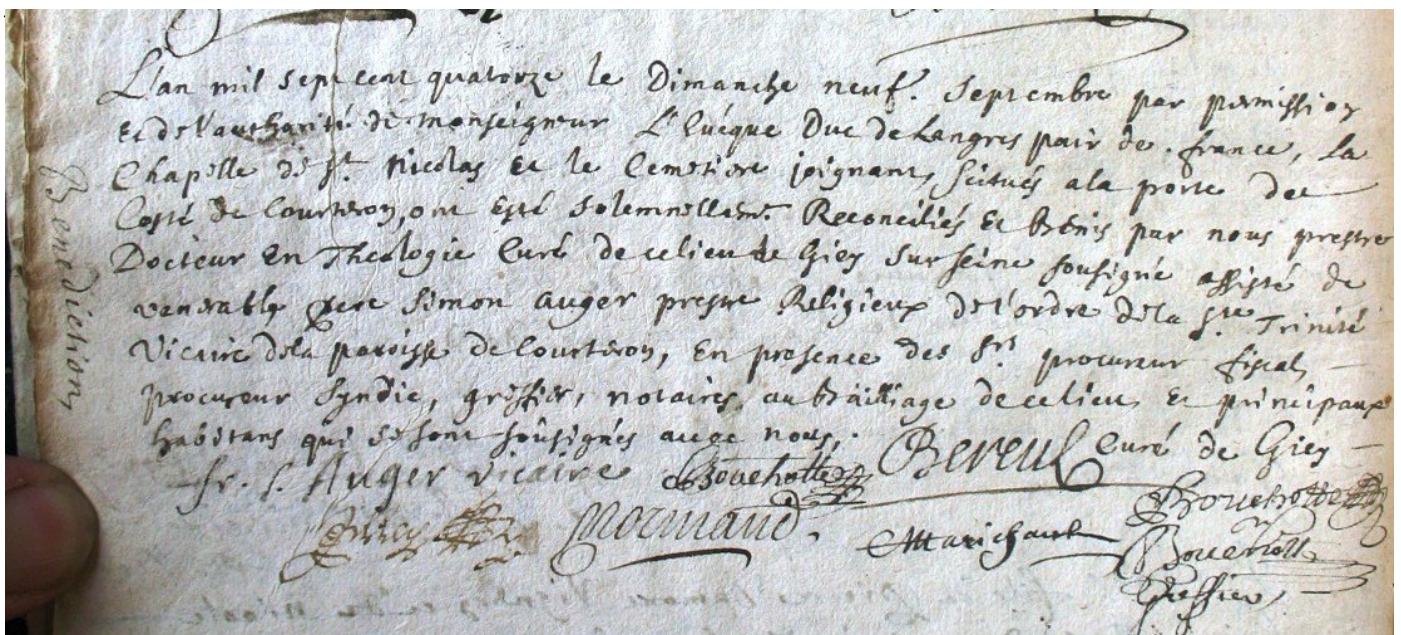 L'an mil sept cent quatorze le Dimanche neuf. Septembre par permission
et de l'autharité de monseigneur L'Evêque Duc de Langres pair de france, La
Chapelle de St. Nicolas et le Cemetiere joignant, scitués a la porte du
Costé de Courteron, ont esté solemnellemt. Reconciliés et benis par nous prestre
Docteur en Theologie Curé de ce lieu de Giey sur seine sousigné assisté de
venerable pere Simon Auger prestre Religieux de l'ordre de la Ste. Trinité
Vicaire de la paroisse de Courteron, en presence des Srs. procureur fiscal,
procureur Syndic, greffier, notaires, au bailliage de ce lieu, et principaux
habitans qui se sont sousignés avec nous,.
Benediction,
fr. S. Auger vicaire Bouchotte Bereul Curé de Giey
Normand. Marichault Bouchotte
Bouchott
Greffier